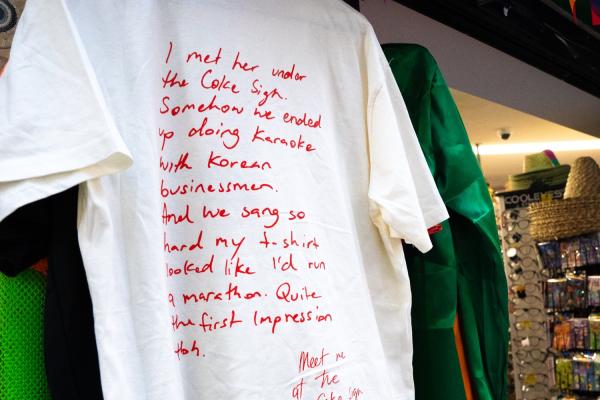 I met her under
the Coke Sign.
Somehow we ended
up doing Karaoke
with Korean
businessmen.
And we sang so
hard my t-shirt
looked like I'd run
a marathon. Quite
the first Impression
tbh.
Meet me
at the
Coke sign